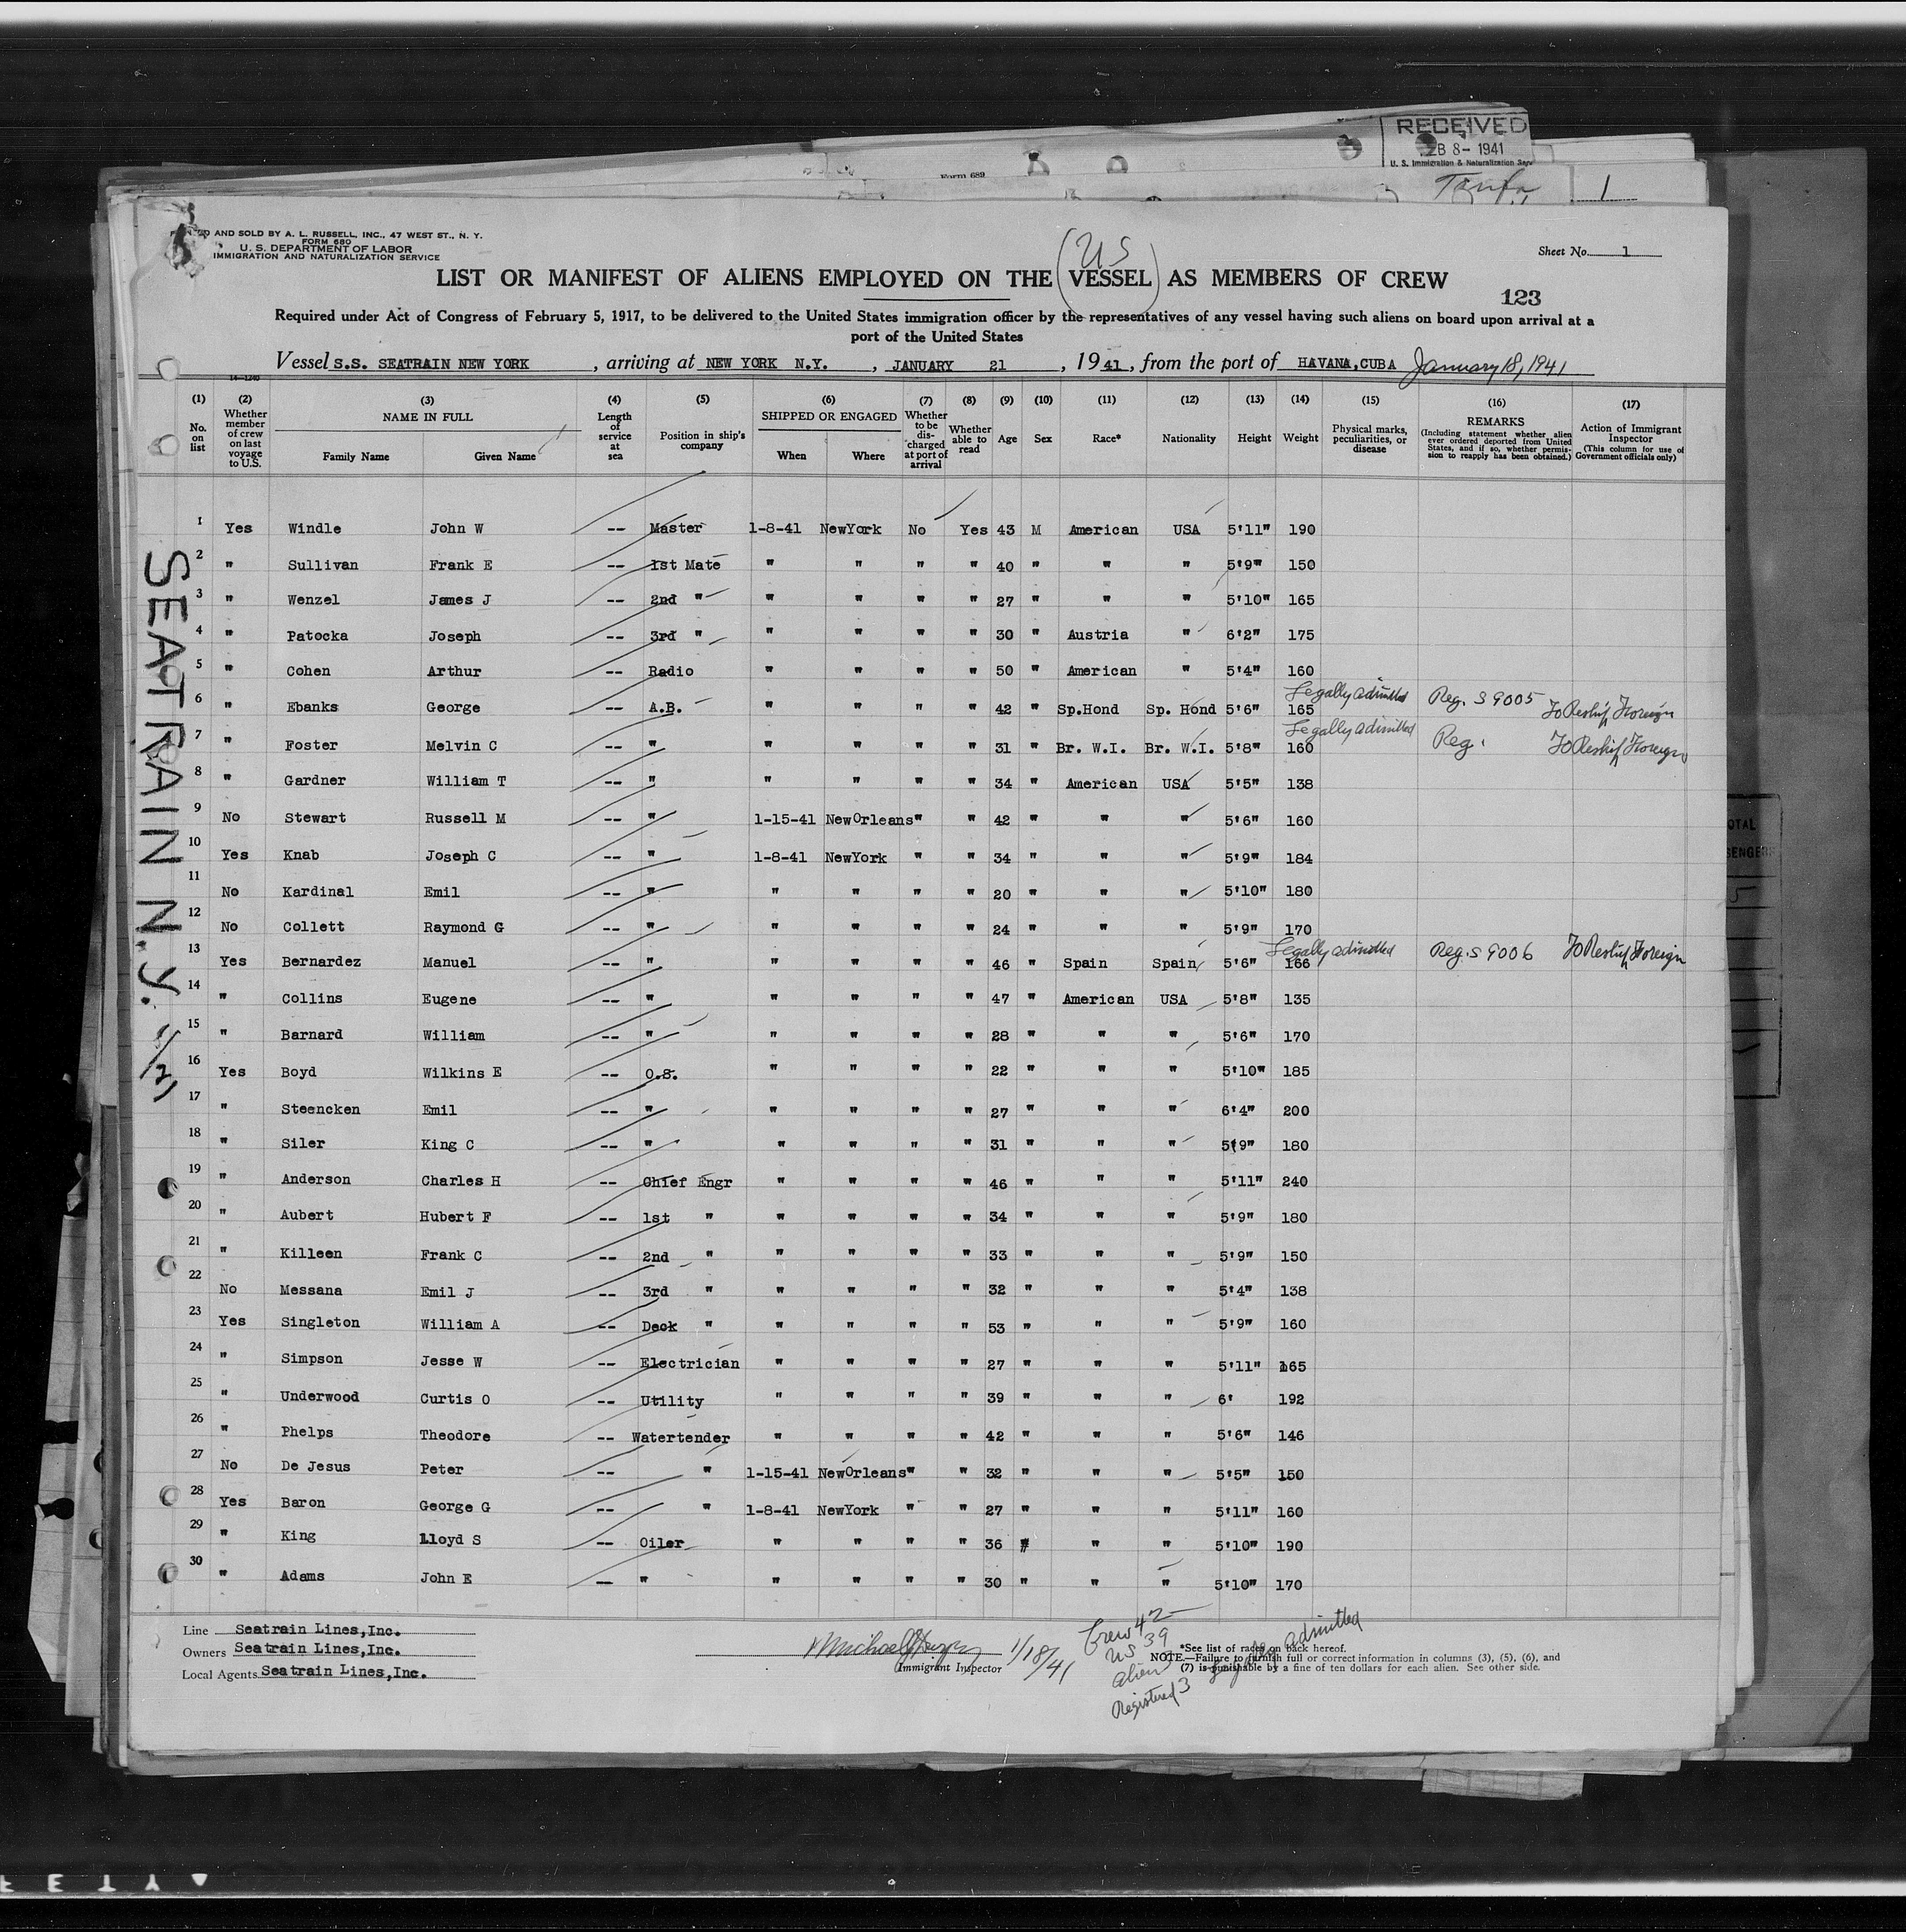 RECEIVED
B 8- 1941
U. S. Immigration & Naturalization Serv
Form 689
1
D AND SOLD BY A. L. RUSSELL, INC., 47 WEST ST., N. Y.
FORM 680
U. S. DEPARTMENT OF LABOR
IMMIGRATION AND NATURALIZATION SERVICE
Sheet No. 1
US
LIST OR MANIFEST OF ALIENS EMPLOYED ON THE (VESSEL) AS MEMBERS OF CREW
123
Required under Act of Congress of February 5, 1917, to be delivered to the United States immigration officer by the representatives of any vessel having such aliens on board upon arrival at a
port of the United States
Vessel S.S. SEATRAIN NEW YORK , arriving at NEW YORK N.Y. , JANUARY 21 , 1941, from the port of HAVANA,CUBA January 18, 1941
(1) No. on list
(2) Whether member of crew on last voyage to U.S.
(3) NAME IN FULL Family Name Given Name
(4) Length of service at sea
(5) Position in ship's company
(6) SHIPPED OR ENGAGED When Where
(7) Whether to be discharged at port of arrival
(8) Whether able to read
(9) Age
(10) Sex
(11) Race*
(12) Nationality
(13) Height
(14) Weight
(15) Physical marks, peculiarities, or disease
(16) REMARKS (Including statement whether alien ever ordered deported from United States, and if so, whether permission to reapply has been obtained.)
(17) Action of Immigrant Inspector (This column for use of Government officials only)
1 Yes Windle John W -- Master 1-8-41 NewYork No Yes 43 M American USA 5'11" 190
2 " Sullivan Frank E -- 1st Mate " " " " 40 " " " 5'9" 150
3 " Wenzel James J -- 2nd " " " " " 27 " " " 5'10" 165
4 " Patocka Joseph -- 3rd " " " " " 30 " Austria " 6'2" 175
5 " Cohen Arthur -- Radio " " " " 50 " American " 5'4" 160
6 " Ebanks George -- A.B. " " " " 42 " Sp.Hond Sp. Hond 5'6" 165 Legally admitted Reg. S 9005 To Reship Foreign
7 " Foster Melvin C -- " " " " " 31 " Br. W.I. Br. W.I. 5'8" 160 Legally admitted Reg. To Reship Foreign
8 " Gardner William T -- " " " " " 34 " American USA 5'5" 138
9 No Stewart Russell M -- " 1-15-41 NewOrleans " " 42 " " " 5'6" 160
10 Yes Knab Joseph C -- " 1-8-41 NewYork " " 34 " " " 5'9" 184
11 No Kardinal Emil -- " " " " " 20 " " " 5'10" 180
12 No Collett Raymond G -- " " " " " 24 " " " 5'9" 170
13 Yes Bernardez Manuel -- " " " " " 46 " Spain Spain 5'6" 166 Legally admitted Reg. S 9006 To Reship Foreign
14 " Collins Eugene -- " " " " " 47 " American USA 5'8" 135
15 " Barnard William -- " " " " " 28 " " " 5'6" 170
16 Yes Boyd Wilkins E -- O.S. " " " " 22 " " " 5'10" 185
17 " Steencken Emil -- " " " " " 27 " " " 6'4" 200
18 " Siler King C -- " " " " " 31 " " " 5'9" 180
19 " Anderson Charles H -- Chief Engr " " " " 46 " " " 5'11" 240
20 " Aubert Hubert F -- 1st " " " " " 34 " " " 5'9" 180
21 " Killeen Frank C -- 2nd " " " " " 33 " " " 5'9" 150
22 No Messana Emil J -- 3rd " " " " " 32 " " " 5'4" 138
23 Yes Singleton William A -- Deck " " " " " 53 " " " 5'9" 160
24 " Simpson Jesse W -- Electrician " " " " 27 " " " 5'11" 165
25 " Underwood Curtis O -- Utility " " " " 39 " " " 6' 192
26 " Phelps Theodore -- Watertender " " " " 42 " " " 5'6" 146
27 No De Jesus Peter -- " 1-15-41 NewOrleans " " 32 " " " 5'5" 150
28 Yes Baron George G -- " 1-8-41 NewYork " " 27 " " " 5'11" 160
29 " King Lloyd S -- Oiler " " " " 36 " " " 5'10" 190
30 " Adams John E -- " " " " " 30 " " " 5'10" 170
SEATRAIN N.Y. 1/21
Line Seatrain Lines,Inc.
Owners Seatrain Lines,Inc.
Local Agents Seatrain Lines,Inc.
Immigrant Inspector 1/18/41
Crew 42
US 39
alien
Registered 3 legally admitted
*See list of races on back hereof.
NOTE.—Failure to furnish full or correct information in columns (3), (5), (6), and
(7) is punishable by a fine of ten dollars for each alien. See other side.